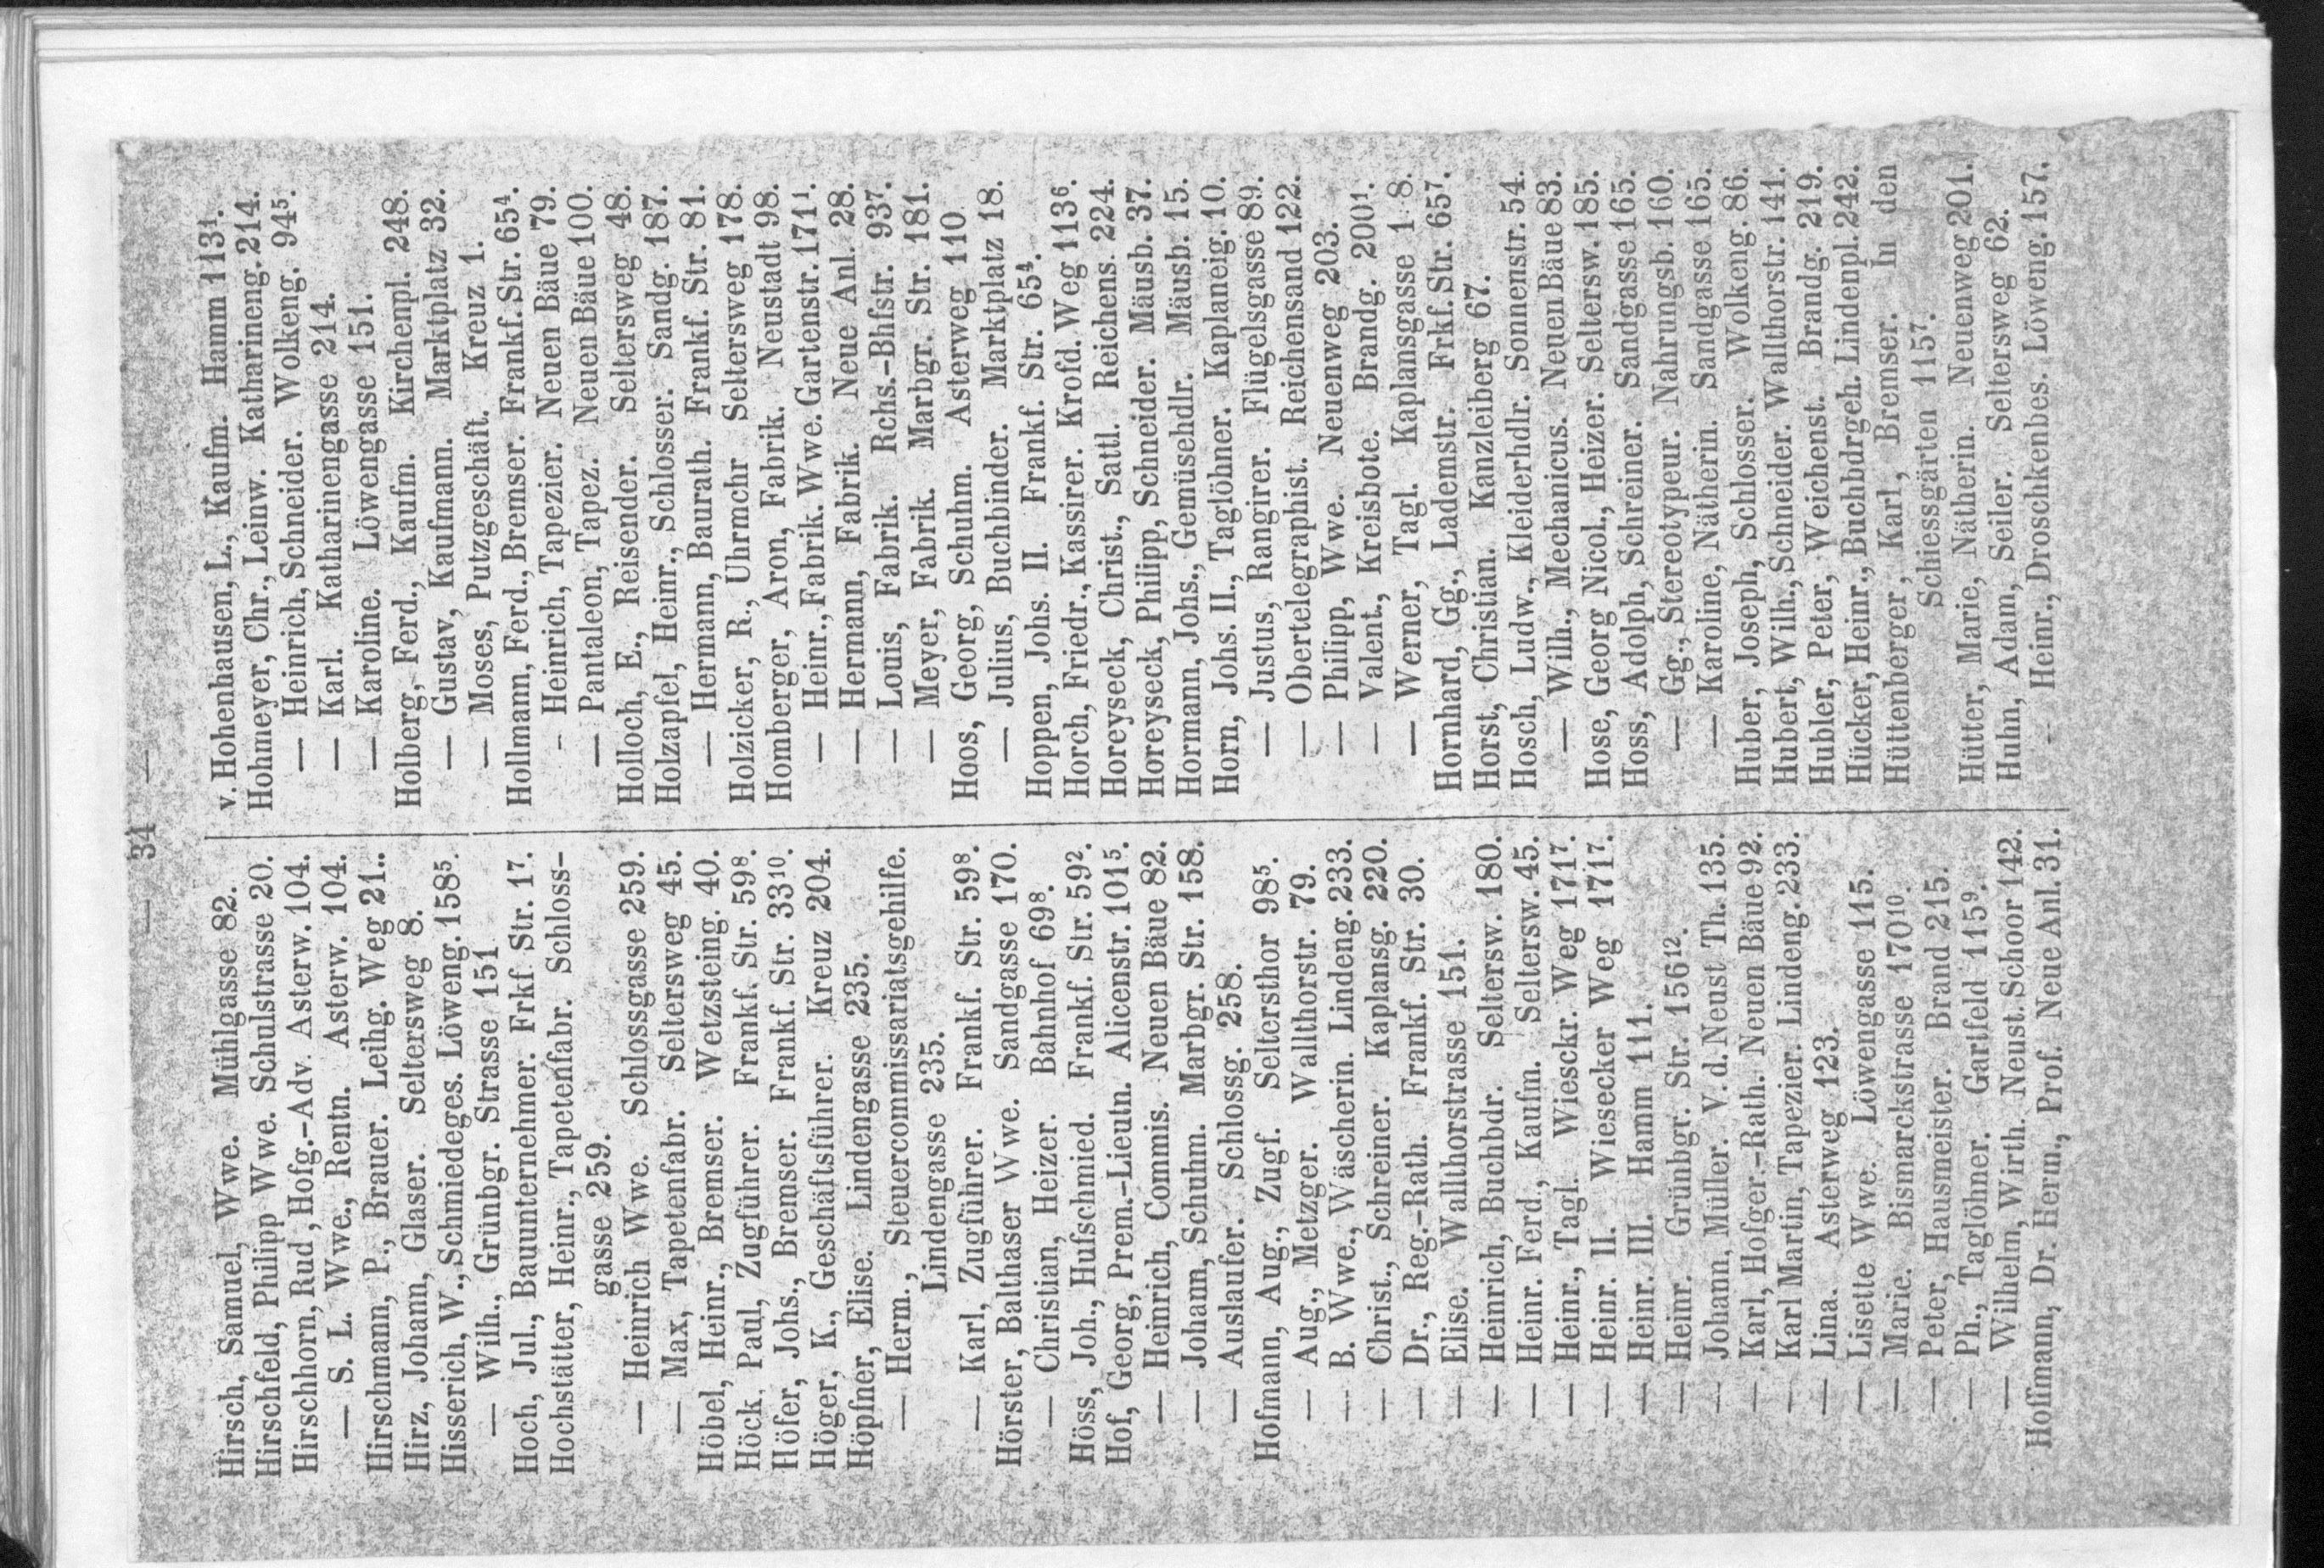 — 34 —
Hirsch, Samuel, Wwe. Mühlgasse 82.
Hirschfeld, Philipp Wwe. Schulstrasse 20.
Hirschhorn, Rud, Hofg.-Adv. Asterw. 104.
— S. L. Wwe., Rentn. Asterw. 104.
Hirschmann, P., Brauer. Leihg. Weg 21..
Hirz, Johann, Glaser. Seltersweg 8.
Hisserich, W., Schmiedeges. Löweng. 158⁵.
— Wilh., Grünbgr. Strasse 151
Hoch, Jul., Bauunternehmer. Frkf. Str. 1⁷.
Hochstätter, Heinr., Tapetenfabr. Schloss-
gasse 259.
— Heinrich Wwe. Schlossgasse 259.
— Max, Tapetenfabr. Seltersweg 45.
Höbel, Heinr., Bremser. Wetzsteing. 40.
Höck, Paul, Zugführer. Frankf. Str. 59⁸.
Höfer, Johs., Bremser. Frankf. Str. 33¹⁰.
Höger, K., Geschäftsführer. Kreuz 204.
Höpfner, Elise. Lindengasse 235.
— Herm., Steuercommissariatsgehilfe.
Lindengasse 235.
— Karl, Zugführer. Frankf. Str. 59⁸.
Hörster, Balthaser Wwe. Sandgasse 170.
— Christian, Heizer. Bahnhof 69⁸.
Höss, Joh., Hufschmied. Frankf. Str. 59².
Hof, Georg, Prem.-Lieutn. Alicenstr. 101⁵.
— Heinrich, Commis. Neuen Bäue 82.
— Johann, Schuhm. Marbgr. Str. 158.
— Auslaufer. Schlossg. 258.
Hofmann, Aug., Zugf. Seltersthor 98⁵.
— Aug., Metzger. Wallthorstr. 79.
— B. Wwe., Wäscherin. Lindeng. 233.
— Christ., Schreiner. Kaplansg. 220.
— Dr., Reg.-Rath. Frankf. Str. 30.
— Elise. Wallthorstrasse 151.
— Heinrich, Buchbdr. Seltersw. 180.
— Heinr. Ferd., Kaufm. Seltersw. 45.
— Heinr., Tagl. Wieseckr. Weg 171⁷.
— Heinr. II. Wiesecker Weg 171⁷.
— Heinr. III. Hamm 111.
— Heinr. Grünbgr. Str. 156¹².
— Johann, Müller. V. d. Neust Th. 135.
— Karl, Hofger.-Rath. Neuen Bäue 92.
— Karl Martin, Tapezier. Lindeng. 233.
— Lina. Asterweg 123.
— Lisette Wwe. Löwengasse 115.
— Marie. Bismarckstrasse 170¹⁰.
— Peter, Hausmeister. Brand 215.
— Ph., Taglöhner. Gartfeld 115⁹.
— Wilhelm, Wirth. Neust. Schoor 142.
Hoffmann, Dr. Herm., Prof. Neue Anl. 31.
v. Hohenhausen, L., Kaufm. Hamm 113¹.
Hohmeyer, Chr., Leinw. Katharineng. 214.
— Heinrich, Schneider. Wolkeng. 94⁵.
— Karl. Katharinengasse 214.
— Karoline. Löwengasse 151.
Holberg, Ferd., Kaufm. Kirchenpl. 248.
— Gustav, Kaufmann. Marktplatz 32.
— Moses, Putzgeschäft. Kreuz 1.
Hollmann, Ferd., Bremser. Frankf. Str. 65⁴.
- Heinrich, Tapezier. Neuen Bäue 79.
— Pantaleon, Tapez. Neuen Bäue 100.
Holloch, E., Reisender. Seltersweg 48.
Holzapfel, Heinr., Schlosser. Sandg. 187.
— Hermann, Baurath. Frankf. Str. 81.
Holzicker, R., Uhrmchr Seltersweg 178.
Homberger, Aron, Fabrik. Neustadt 98.
— Heinr., Fabrik. Wwe. Gartenstr. 171¹.
— Hermann, Fabrik. Neue Anl. 28.
— Louis, Fabrik. Rchs.-Bhfstr. 93⁷.
— Meyer, Fabrik. Marbgr. Str. 181.
Hoos, Georg, Schuhm. Asterweg 110
— Julius, Buchbinder. Marktplatz 18.
Hoppen, Johs. II. Frankf. Str. 65⁴.
Horch, Friedr., Kassirer. Krofd. Weg 113⁶.
Horeyseck, Christ., Sattl. Reichens. 224.
Horeyseck, Philipp, Schneider. Mäusb. 37.
Hormann, Johs., Gemüsehdlr. Mäusb. 15.
Horn, Johs. II., Taglöhner. Kaplaneig. 10.
— Justus, Rangirer. Flügelsgasse 89.
— Obertelegraphist. Reichensand 122.
— Philipp, Wwe. Neuenweg 203.
— Valent., Kreisbote. Brandg. 200¹.
— Werner, Tagl. Kaplansgasse 1 8.
Hornhard, Gg., Lademstr. Frkf. Str. 65⁷.
Horst, Christian. Kanzleiberg 67.
Hosch, Ludw., Kleiderhdlr. Sonnenstr. 54.
— Wilh., Mechanicus. Neuen Bäue 83.
Hose, Georg Nicol., Heizer. Seltersw. 185.
Hoss, Adolph, Schreiner. Sandgasse 165.
— Gg., Stereotypeur. Nahrungsb. 160.
— Karoline, Nätherin. Sandgasse 165.
Huber, Joseph, Schlosser. Wolkeng. 86.
Hubert, Wilh., Schneider. Wallthorstr. 141.
Hubler, Peter, Weichenst. Brandg. 219.
Hücker, Heinr., Buchbdrgeh. Lindenpl. 242.
Hüttenberger, Karl, Bremser. In den
Schiessgärten 115⁷.
Hütter, Marie, Nätherin. Neuenweg 201.
Huhn, Adam, Seiler. Seltersweg 62.
— Heinr., Droschkenbes. Löweng. 157.